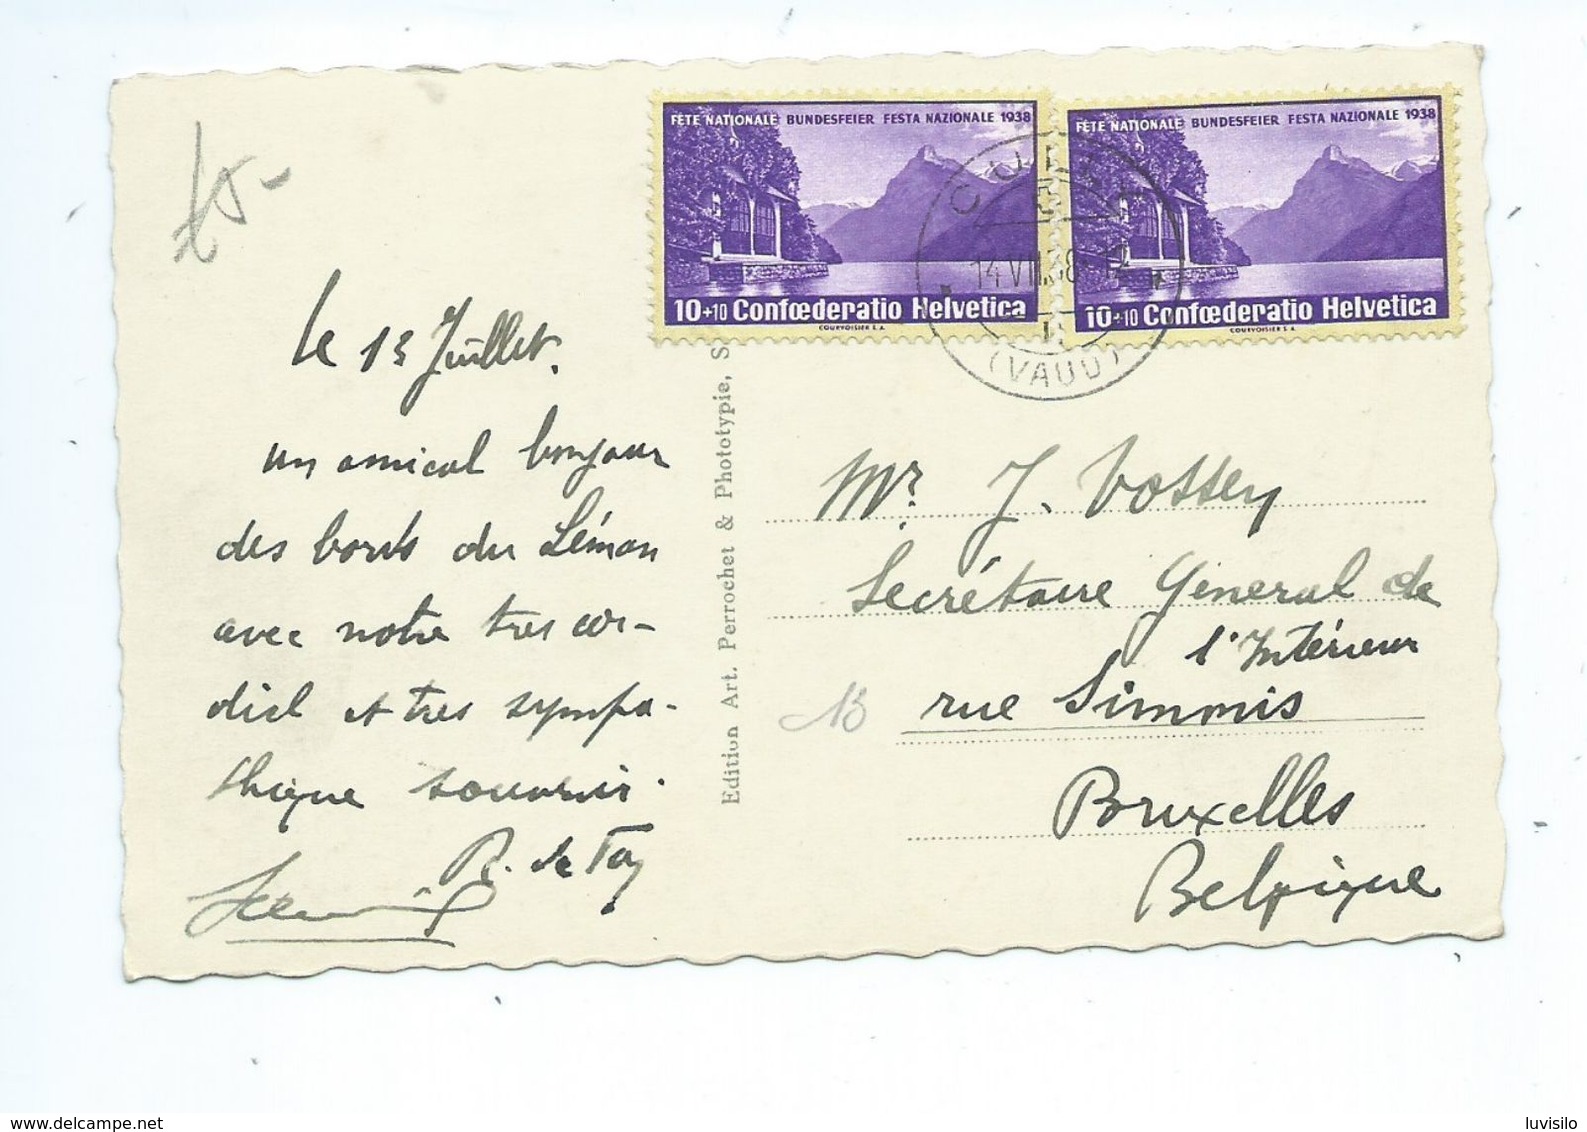 FÊTE NATIONALE BUNDESFEIER FESTA NAZIONALE 1938
10+10 Confœderatio Helvetica
COURVOISIER S.A.
FÊTE NATIONALE BUNDESFEIER FESTA NAZIONALE 1938
10+10 Confœderatio Helvetica
COURVOISIER S.A.
CULLY
14 VII.38
(VAUD)
le 13 Juillet.
un amical bonjour
des bords du Léman
avec notre tres cor-
dial et tres sympa-
thique souvenir.
R. de
Edition Art. Perrochet & Phototypie, S
Mr. J. Vossen
Secrétaire Général de
l'Intérieur
rue Simonis
Bruxelles
Belgique
www.delcampe.net
luvisilo